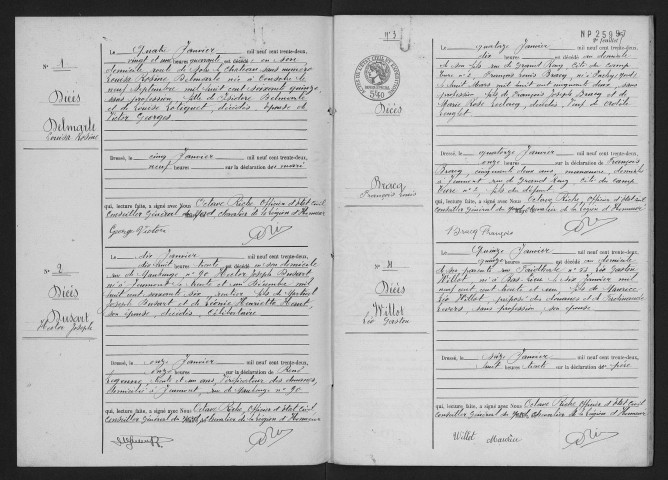 N° 1
Décès
Delmarle
Louisa Rosine
Le quatre Janvier mil neuf cent trente-deux,
vingt et une heures quarante est décédée en son
domicile, route de
sans numéro
Louisa Rosine Delmarle née à Cousolre le
neuf Septembre mil huit cent soixante quinze,
sans profession, fille de Isidore Delmarle
et de Louise
décédés, épouse de
Victor Georges
Dressé, le cinq Janvier mil neuf cent trente-deux,
neuf heures sur la déclaration du mari
qui, lecture faite, a signé avec Nous Octave Riche, Officier d'état Civil,
Conseiller Général du Nord, Chevalier de la Légion d'Honneur
George Victor
N° 2
Décès
Busart
Hector Joseph
Le dix Janvier mil neuf cent trente-deux,
dix huit heures trente est décédé en son domicile
rue de Maubeuge n° 90 Hector Joseph Busart,
né à Jeumont le trente et un Décembre mil
huit cent soixante six, rentier, fils de
Joseph Busart et de Léonie Henriette
son épouse, décédés, célibataire
Dressé, le onze Janvier mil neuf cent trente-deux,
onze heures sur la déclaration de René
trente et un ans, vérificateur des douanes,
domicilié à Jeumont, rue de Maubeuge n° 90
qui, lecture faite, a signé avec Nous Octave Riche, Officier d'état Civil
Conseiller Général du Nord, Chevalier de la Légion d'Honneur
N° 3
NP25993
feuillet
Décès
Bracq
François Louis
Le quatorze Janvier mil neuf cent trente-deux,
six heures est décédé au domicile
de son fils rue du Grand
Cité du Camp
n° 2, François Louis Bracq, né à
le huit Mars mil huit cent
deux, sans
profession, fils de François Joseph Bracq et de
Marie Rose Leclercq, décédés, veuf de Clotilde
Dressé, le quatorze Janvier mil neuf cent trente-deux,
onze heures sur la déclaration de François
Bracq, cinquante deux ans, manœuvre, domicilié
à Jeumont rue du Grand
Cité du camp
n° 2, fils du défunt
qui, lecture faite, a signé avec Nous Octave Riche, Officier d'état Civil,
Conseiller Général du Nord, Chevalier de la Légion d'Honneur
Bracq François
N° 4
Décès
Willot
Léo Gaston
Le Quinze Janvier mil neuf cent trente-deux,
quinze heures est décédé au domicile
de ses parents rue
n° 23 Léo Gaston
Willot, né à
le dix Janvier mil
neuf cent trente et un, fils de Maurice
Léo Willot, préposé des douanes et de Ferdinande
sans profession, son épouse.
Dressé, le Seize Janvier mil neuf cent trente-deux,
huit heures trente sur la déclaration du père
qui, lecture faite, a signé avec Nous Octave Riche, Officier d'état Civil,
Conseiller Général du Nord, Chevalier de la Légion d'Honneur
Willot Maurice